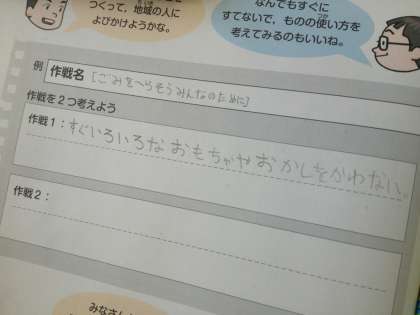 つくって、地域の人に
よびかけようかな。
なんでもすぐに
すてないで、ものの使い方を
考えてみるのもいいね。
例 作戦名 [ごみをへらそうみんなのために]
作戦を2つ考えよう
作戦1:すぐいろいろなおもちゃやおかしをかわない。
作戦2:
みなさん